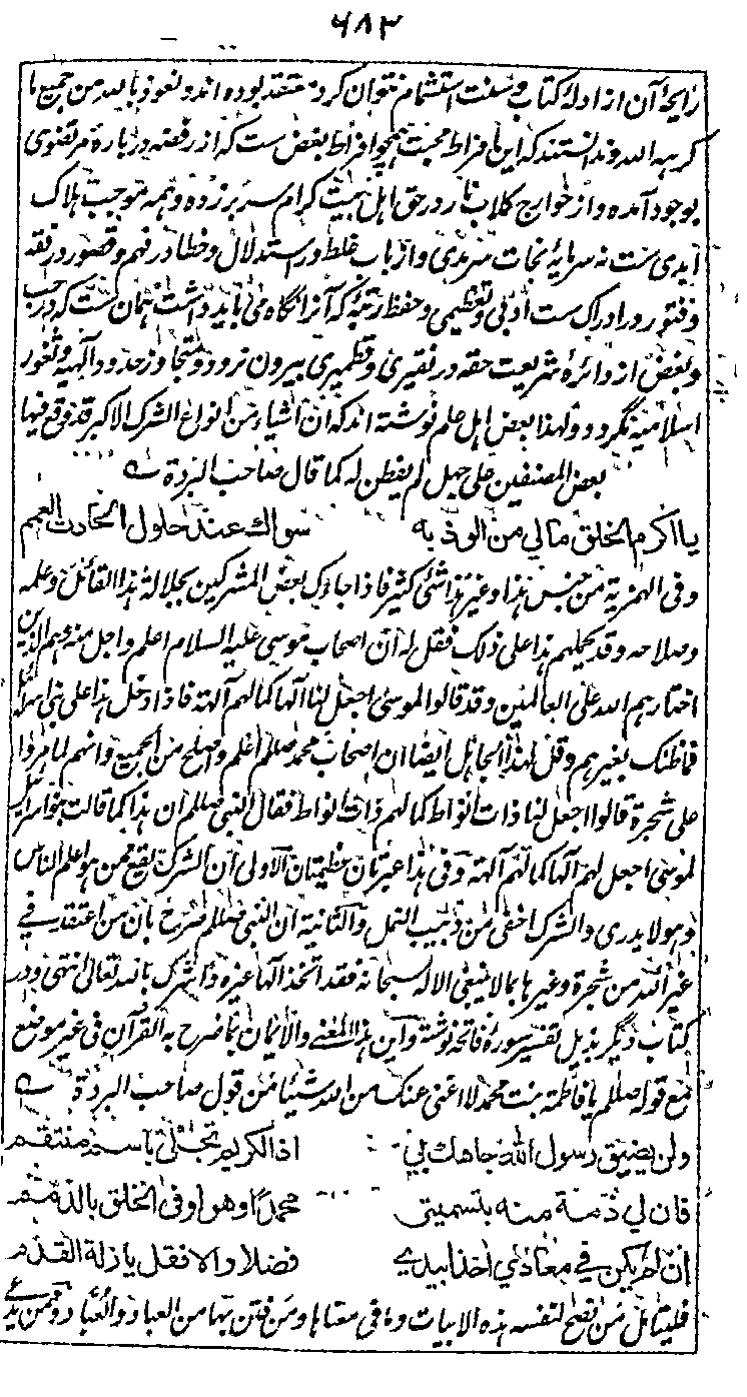 ۶۸۳
رایحۂ آن از ادلۂ کتاب و سنت استشمام نتوان کرد معتقد بوده اند و نعوذ باللہ من جمیع ما
کرہہ اللہ و ندانستند کہ این افراط محبت ہمچو افراط بغض ست کہ از رفضہ دربارۂ مرتضوی
بوجود آمدہ و از خوارج کلاب نار در حق اہل بیت کرام سر برزدہ و ہمہ موجب ہلاک
ابدی ست نہ سرمایۂ نجات سرمدی و از باب غلط در استدلال و خطا در فہم و قصور در نقد
و فتور در ادراک ست ادبی و تعظیمی و حفظ رتبۂ کہ آنرا نگاہ می باید داشت ہمان ست کہ در حب
و بغض از دائرۂ شریعت حقہ در نقیری و قطمیری بیرون نرود و متجاوز حدود الٰہیہ و ثغور
اسلامیہ نگردد و لہذا بعض اہل علم نوشتہ اند کہ ان اشیاء من انواع الشرک الاکبر قد وقع فیہا
بعض المصنفین علی جہل لم یفطن لہ کما قال صاحب البردة ؎
یا اکرم الخلق مالي من الوذ به سواك عند حلول الحادث العمم
و فی الہمزیة من جنس ہذا و غیر ہذا شئ کثیر فاذا جاءک بعض المشرکین بجلالة ہذا القائل و علمہ
و صلاحہ و قد یحملہم ہذا علی ذلک فقل لہ ان اصحاب موسی علیہ السلام اعلم و اجل منہ و ہم الذین
اختارہم اللہ علی العالمین و قد قالوا لموسی اجعل لنا الٰہا کما لہم آلہة فاذا دخل ہذا علی بنی اسرائیل
فما ظنک بغیرہم و قل لہذا الجاہل ایضا ان اصحاب محمد صلعم اعلم و اصلح من الجمیع و انہم لما مروا
علی شجرة قالوا اجعل لنا ذات انواط کما لہم ذات انواط فقال النبی صلعم ان ہذا کما قالت بنو اسرائیل
لموسی اجعل لہم الٰہا کما لہم آلہة و فی ہذا عبرتان عظیمتان الاولی ان الشرک یقع فیمن ہو اعلم الناس
و ہو لا یدری و الشرک اخفی من دبیب النمل و الثانیة ان النبی صلعم صرح بان من اعتقد فی
غیر اللہ من شجرة و غیرہا بما لا ینبغی الا لہ سبحانہ فقد اتخذ الٰہا غیرہ و اشرک باللہ تعالی انتہی و در
کتاب دیگر بذیل تفسیر سورۂ فاتحہ نوشتہ و این ہذا المعنی و الایمان بما صرح بہ القرآن فی غیر موضع
مع قولہ صلعم یا فاطمة بنت محمد لا اغنی عنک من اللہ شیئا من قول صاحب البردة ؎
ولن يضيق رسول الله جاهك بي اذا الكريم تجلى باسم منتقم
فان لي ذمة منه بتسميتي محمدا وهو اوفى الخلق بالذمم
ان لم يكن في معادي اخذا بيدي فضلا والا فقل يا زلة القدم
فلیتامل من نصح لنفسہ ہذہ الابیات و ما فی معناہا و من فتن بہا من العباد و العُبّاد و ممن یدعی